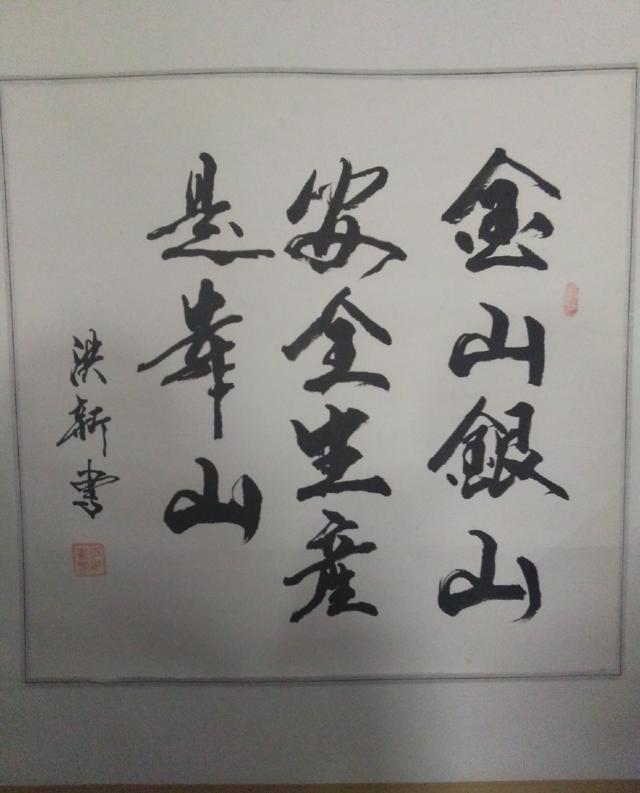 金山銀山
安全生産
是靠山
洪新書